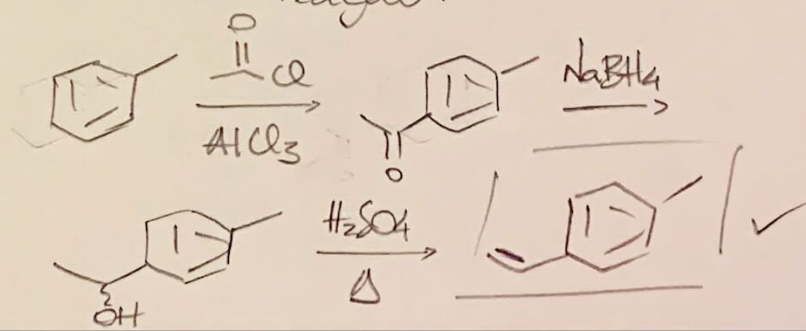 O
Cl
AlCl3
O
NaBH4
OH
H2SO4
Δ